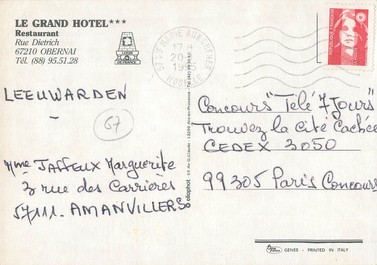 LE GRAND HOTEL***
Restaurant
Rue Dietrich
67210 OBERNAI
Tél. (88) 95.51.28
LEEUWARDEN
57
Mme JAFFEUX Marguerite
3 rue des Carrières
57111. AMANVILLERS
Concours "Télé 7 Jours"
Trouvez la Cité Cachée
CEDEX 3050
99305 Paris Concours
GENÈS - PRINTED IN ITALY